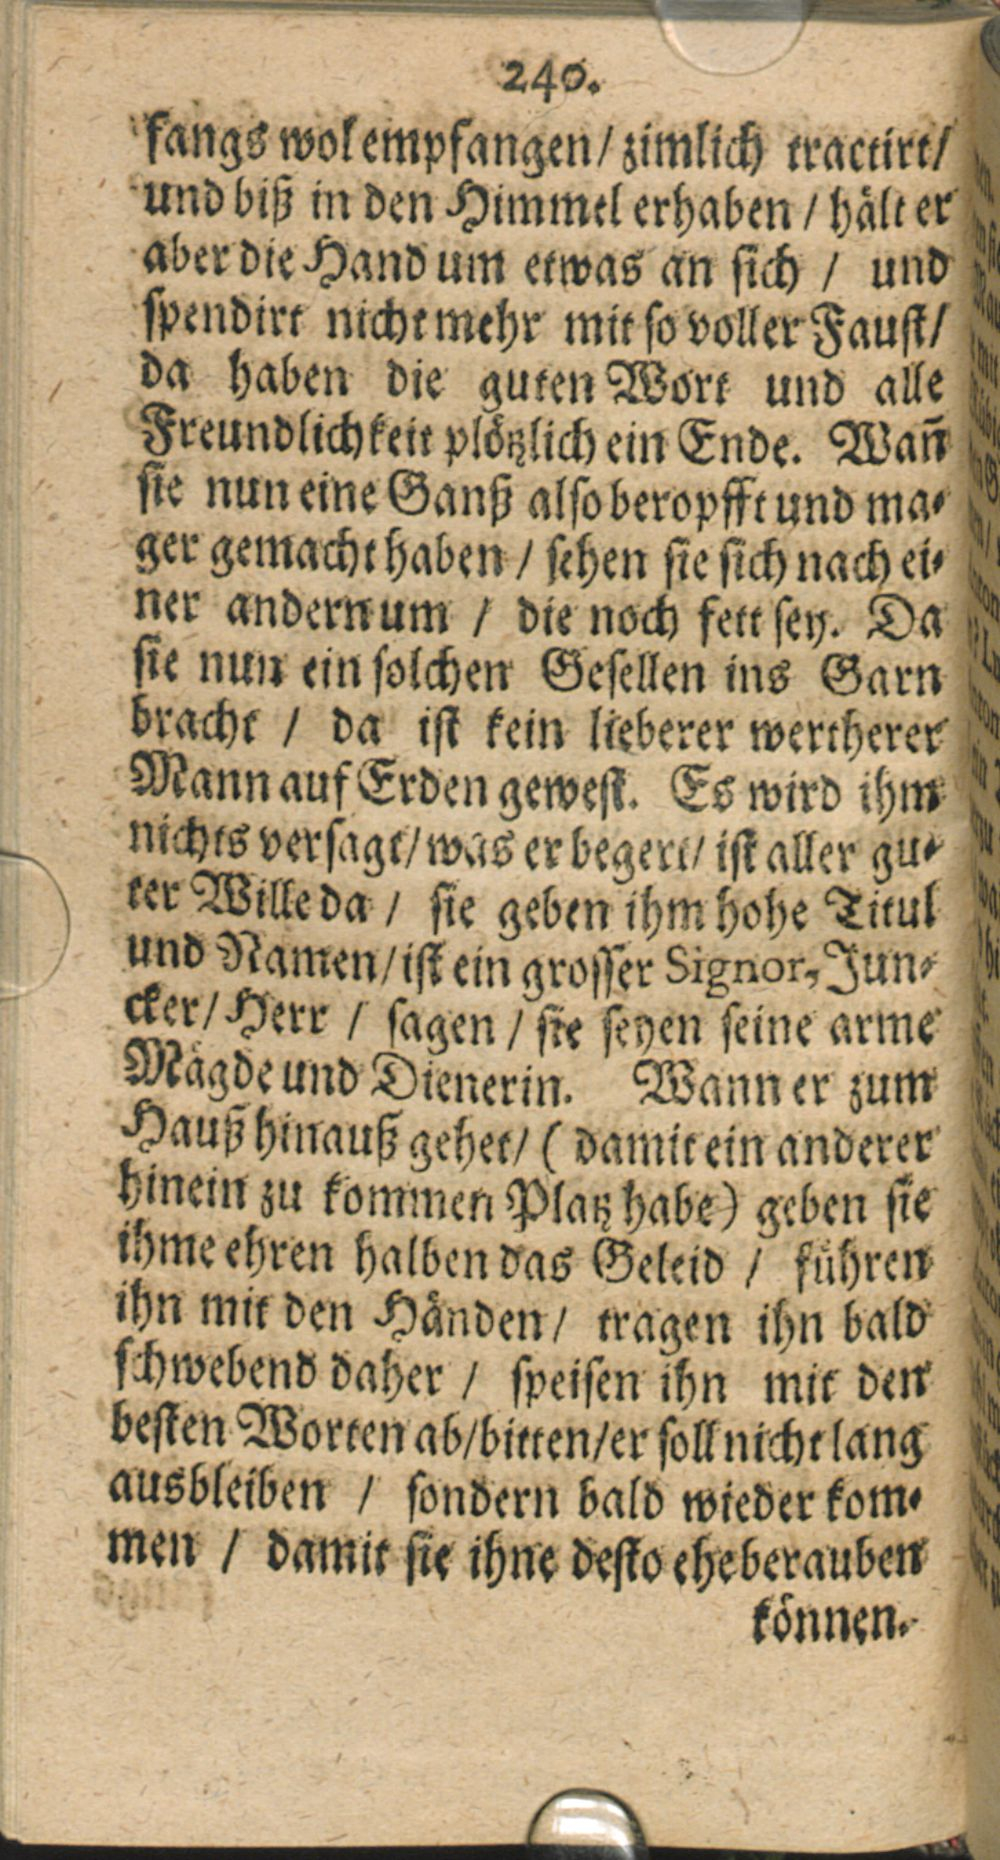 240.
fangs wol empfangen/ zimlich tractirt/
und biß in den Himmel erhaben / hält er
aber die Hand um etwas an sich / und
spendirt nicht mehr mit so voller Faust/
da haben die guten Wort und alle
Freundlichkeit plötzlich ein Ende. Wañ
sie nun eine Ganß also beropfft und ma-
ger gemacht haben / sehen sie sich nach ei-
ner andern um / die noch fett sey. Da
sie nun ein solchen Gesellen ins Garn
bracht / da ist kein lieberer wertherer
Mann auf Erden gewest. Es wird ihm
nichts versagt/ was er begert/ ist aller gu-
ter Wille da / sie geben ihm hohe Titul
und Namen/ ist ein grosser Signor, Jun-
cker/ Herr / sagen / sie seyen seine arme
Mägde und Dienerin. Wann er zum
Hauß hinauß gehet/ ( damit ein anderer
hinein zu kommen Platz habe) geben sie
ihme ehren halben das Geleid / führen
ihn mit den Händen/ tragen ihn bald
schwebend daher / speisen ihn mit den
besten Worten ab/ bitten/ er soll nicht lang
ausbleiben / sondern bald wieder kom-
men / damit sie ihne desto ehe berauben
können.